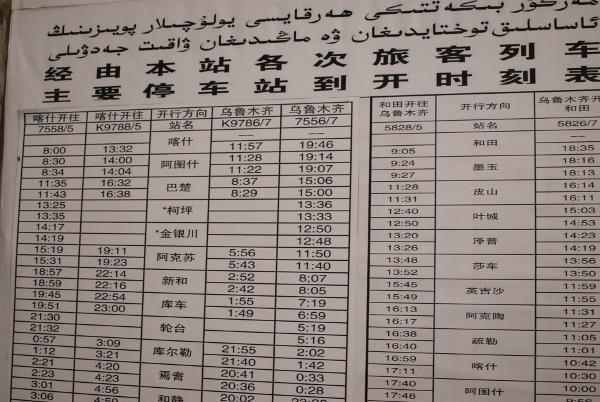 مەزكۇر بېكەتتىكى ھەرقايسى يولۇچىلار پويىزىنىڭ
ئاساسلىق توختايدىغان ۋە ماڭىدىغان ۋاقىت جەدۋىلى
经由本站各次旅客列车
主要停车站到开时刻表
喀什开往 喀什开往 开行方向 乌鲁木齐 乌鲁木齐
7558/5 K9788/5 站名 K9786/7 7556/7
喀什 -- --
8:00 13:32 11:57 19:46
8:30 14:00 阿图什 11:28 19:14
8:34 14:04 11:22 19:07
11:35 16:32 巴楚 8:37 15:06
11:43 16:38 8:29 15:00
13:25 *柯坪 13:36
13:35 13:33
14:17 *金银川 12:50
14:19 12:48
15:19 19:11 阿克苏 5:56 11:50
15:31 19:23 5:43 11:40
18:57 22:14 新和 2:52 8;07
18:59 22:16 2:42 8:05
19:45 22:54 库车 1:55 7:19
19:51 23:00 1:49 6:59
21:30 轮台 5:19
21:32 5:16
0:57 3:09 库尔勒 21:55 2:02
1:12 3:21 21:40 1:42
2:21 4:20 焉耆 20:41 0:33
2:23 4:23 20:36 0:28
3:01 4:56 和静 20:02
3:06 4:59
和田开往 开行方向 乌鲁木齐开
乌鲁木齐 和田
5828/5 站名 5826/7
-- 和田 18:35
9:05 --
9:24 墨玉 18:16
9:27 18:13
11:28 皮山 16:14
11:31 16:11
12:40 叶城 15:03
12:50 14:53
13:20 泽普 14:23
13:26 14:19
13:48 莎车 13:56
13:52 13:50
15:45 英吉沙 11:59
15:49 11:55
16:13 阿克陶 11:31
16:17 11:27
16:38 疏勒 11:05
16:40 11:01
16:59 喀什 10:42
17:11 10:30
17:40 阿图什 10:00
17:48 9:56